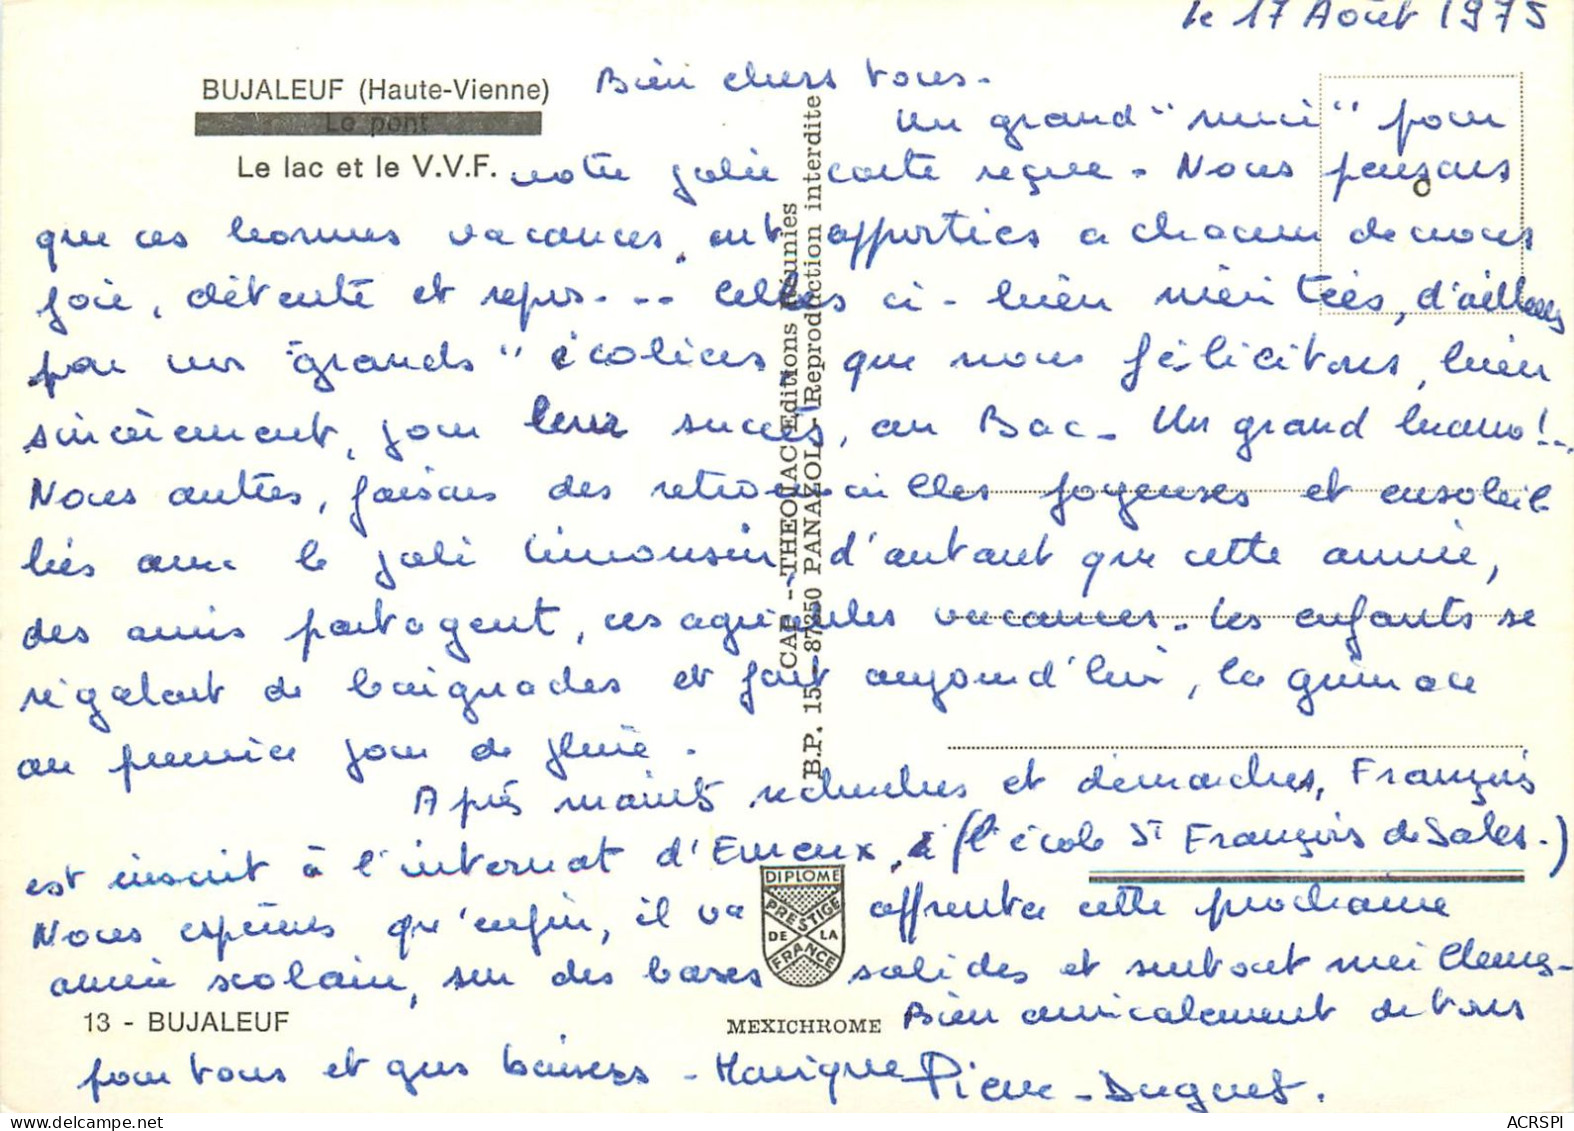 le 17 Août 1975
BUJALEUF (Haute-Vienne)
Le pont
Le lac et le V.V.F.
Bien chers tous.
Un grand "merci" pour
votre jolie carte reçue. Nous pensons
que ces bonnes vacances, ont apportées a chacun de vous
joie, détente et repos... Celles ci - bien méritées, d'ailleurs
par vos "grands" écoliers que nous félicitons, bien
sincèrement, pour leur succès, au Bac. Un grand bravo!..
Nous autres, faisons des retrouvailles joyeuses et ensoleil
lées avec le joli Limousin, d'autant que cette année,
des amis partagent, ces agréables vacances. Les enfants se
régalent de baignades et font aujourd'hui, la grimace
au premier jour de pluie.
Après maints recherches et démarches, François
est inscrit à l'internat d'Evreux, à (l'école St François de Sales.)
Nous espérons qu'enfin, il va affronter cette prochaine
année scolaire, sur des bases solides et surtout meilleures.
Bien amicalement de tous
pour tous et gros baisers - Monique Pierre - Duguet.
CAP - THEOJAC Editions Réunies
B.P. 15 - 87350 PANAZOL - Reproduction interdite
DIPLOME
PRESTIGE
DE LA
FRANCE
13 - BUJALEUF
MEXICHROME
ACRSPI